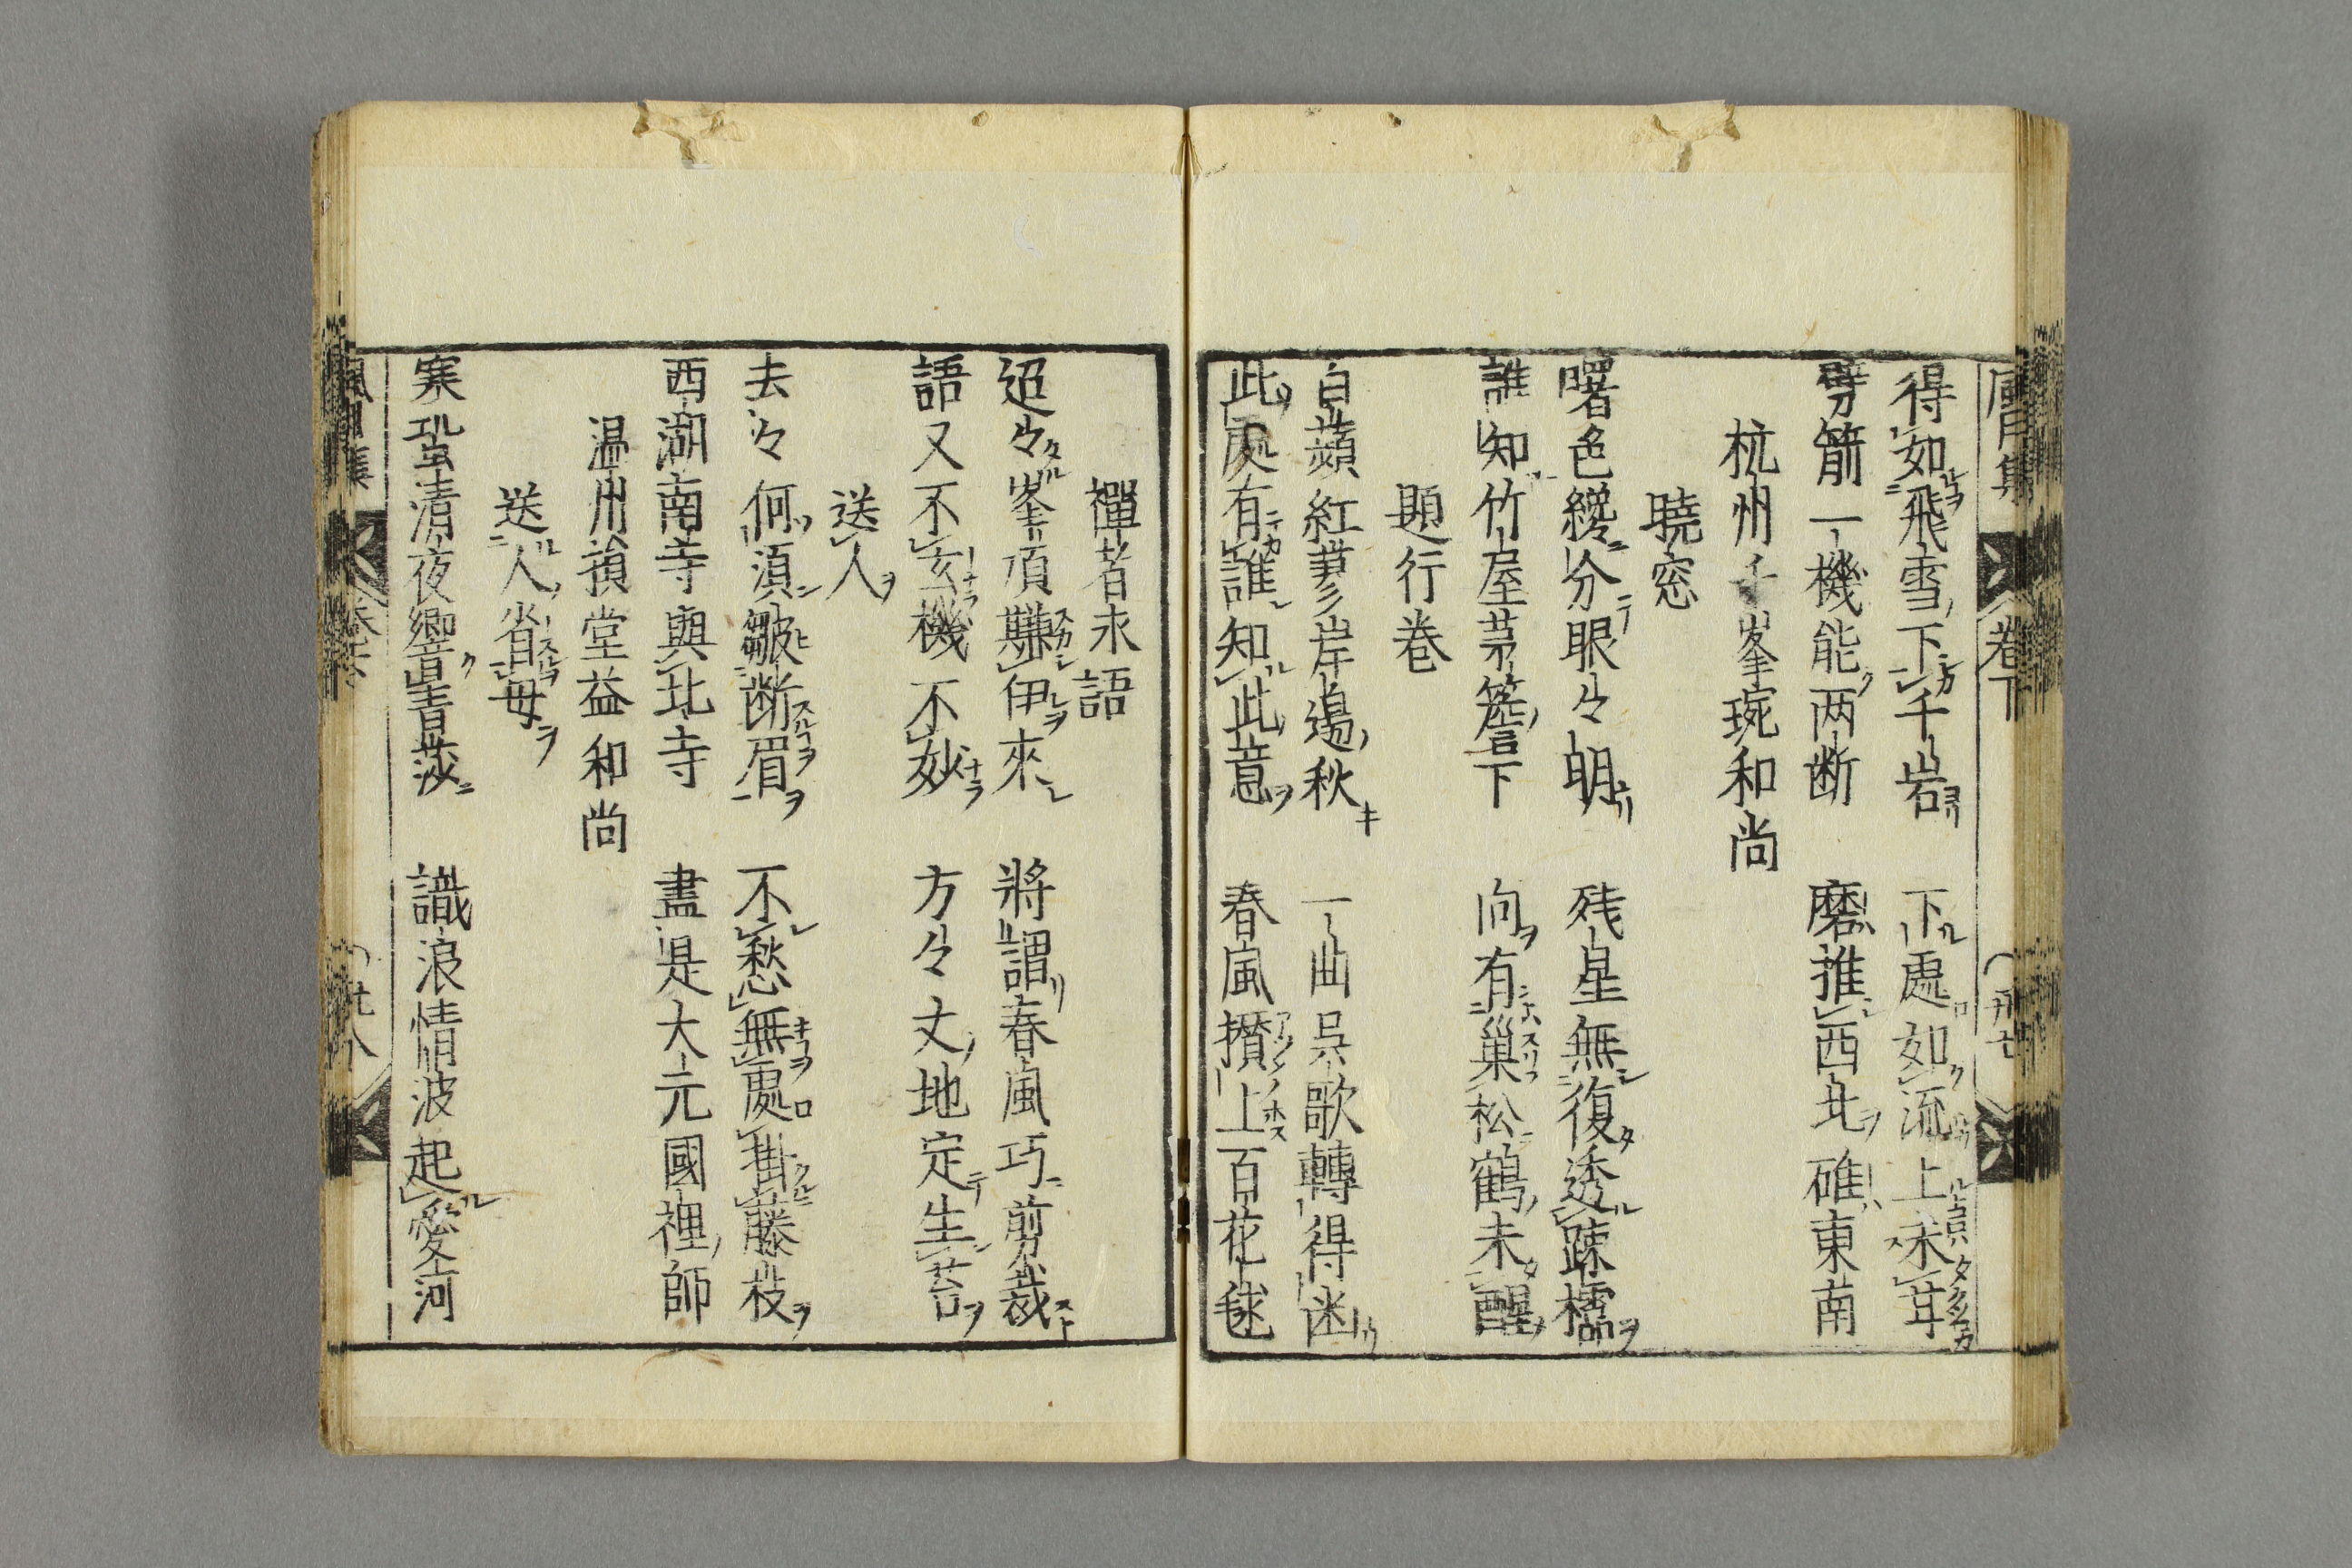 得如飛雪下千岩　下處如流上未茸
劈箭一機能両断　磨推西北碓東南
杭州千峯琬和尚
暁窓
曙色纔分眼々明　残星無復透疎櫺
誰知竹屋茅簷下　向有巣松鶴未醒
題行巻
白蘋紅蓼岸邊秋　一曲呉歌轉得幽
此處有誰知此意　春風攅上百花毬
禪者求語
迢々峯頂難伊來　將謂春風巧剪裁
語又不玄機不妙　方々丈地定生苔
送人
去々何湏皺断眉　不愁無處掛藤枝
西湖南寺與北寺　盡是大元國裡師
温州禎堂益和尚
送人省母
寒蛩清夜響青莎　識浪情波起愛河